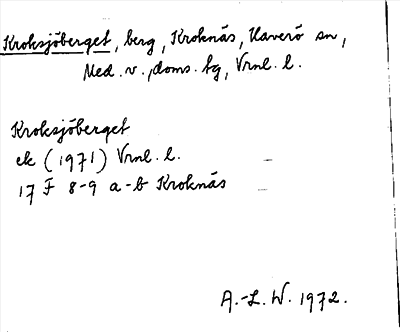 Kroksjöberget, berg, Kroknäs, Haverö sn,
Med. v., doms. tg, Vrnl. l.
Kroksjöberget
ek (1971) Vrnl. l.
17 F 8-9 a-b Kroknäs
A.-L. W. 1972.